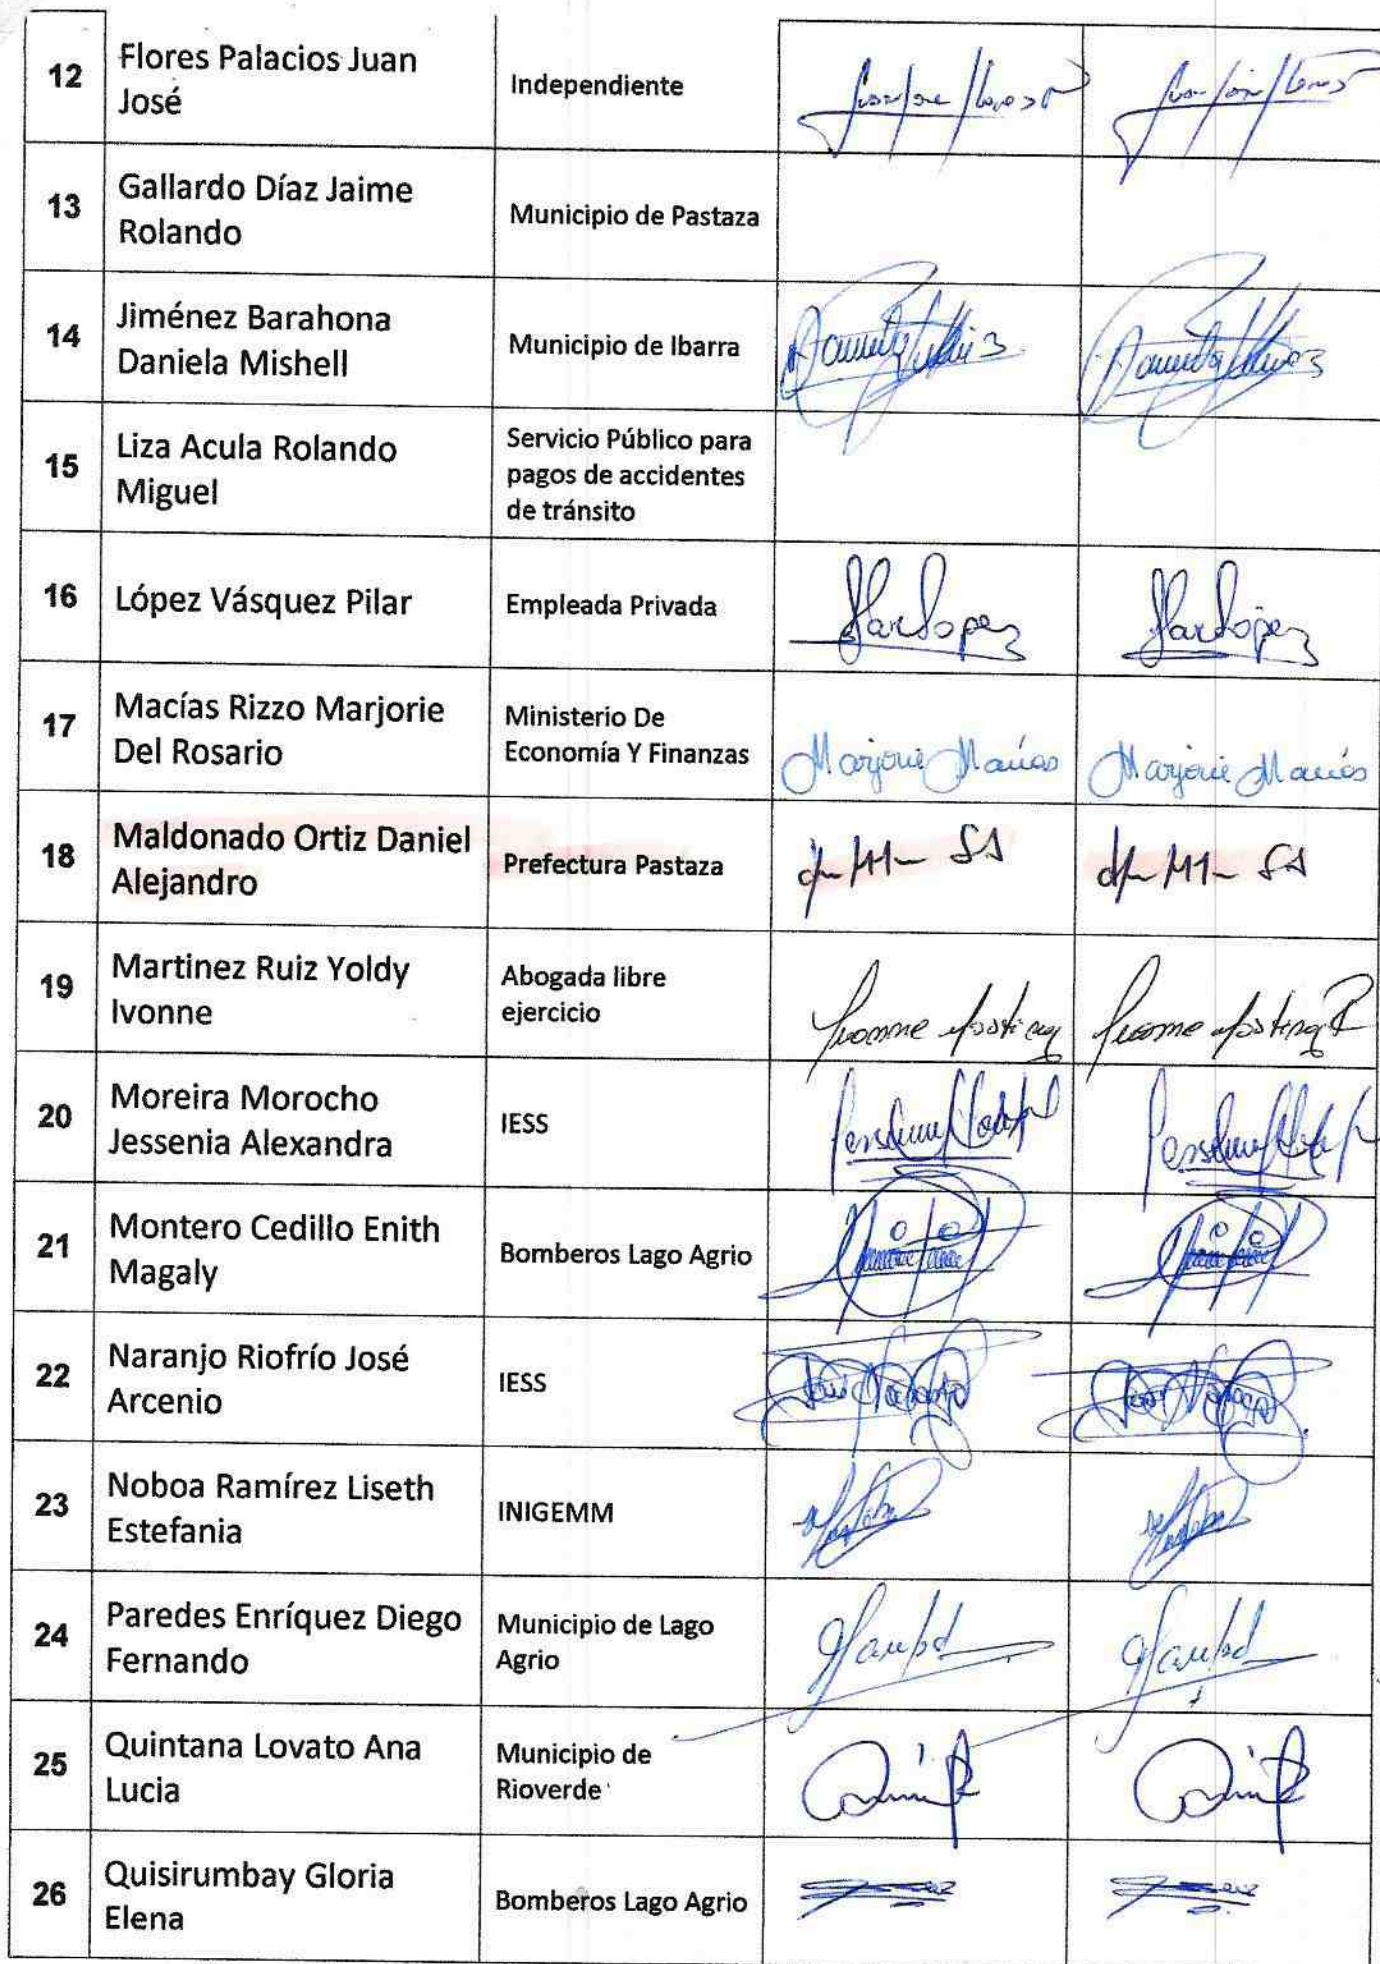 12
Flores Palacios Juan
José
Independiente
13
Gallardo Díaz Jaime
Rolando
Municipio de Pastaza
14
Jiménez Barahona
Daniela Mishell
Municipio de Ibarra
15
Liza Acula Rolando
Miguel
Servicio Público para
pagos de accidentes
de tránsito
16
López Vásquez Pilar
Empleada Privada
17
Macías Rizzo Marjorie
Del Rosario
Ministerio De
Economía Y Finanzas
Marjorie Macías Marjorie Macías
18
Maldonado Ortiz Daniel
Alejandro
Prefectura Pastaza
19
Martinez Ruiz Yoldy
Ivonne
Abogada libre
ejercicio
20
Moreira Morocho
Jessenia Alexandra
IESS
21
Montero Cedillo Enith
Magaly
Bomberos Lago Agrio
22
Naranjo Riofrío José
Arcenio
IESS
23
Noboa Ramírez Liseth
Estefania
INIGEMM
24
Paredes Enríquez Diego
Fernando
Municipio de Lago
Agrio
25
Quintana Lovato Ana
Lucia
Municipio de
Rioverde
26
Quisirumbay Gloria
Elena
Bomberos Lago Agrio